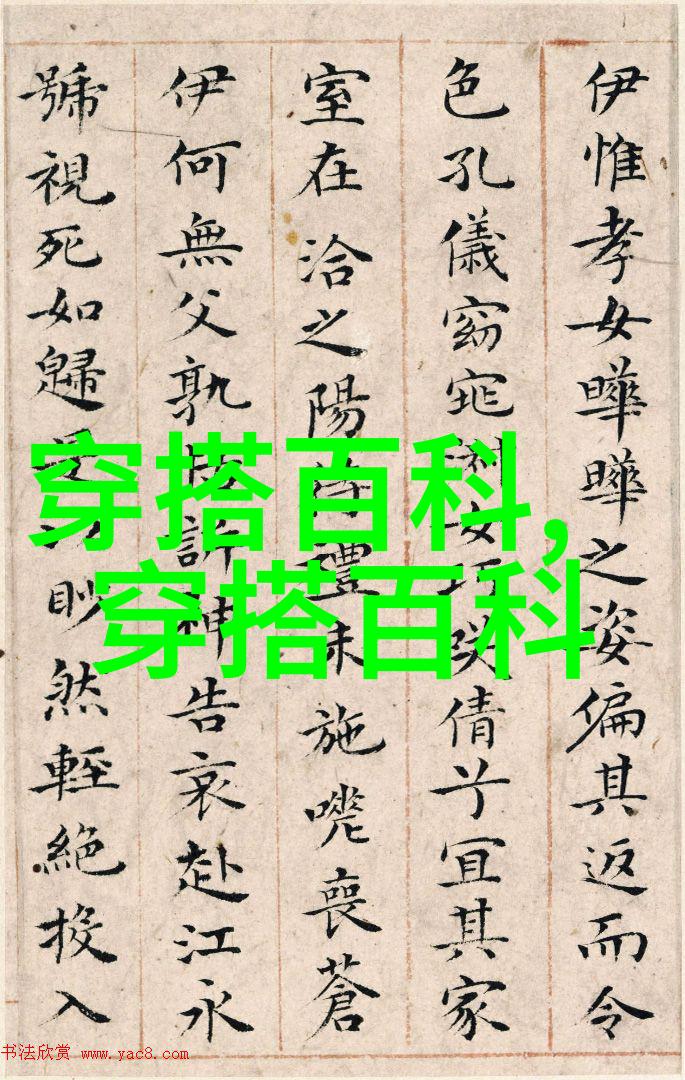 伊惟孝女曄曄之姿偏其返而令
色孔儀窈窕淑女巧笑倩兮宜其家
室在洽之陽待禮未施嗟喪蒼
伊何無父孰怙訴神告哀赴江永
號視死如歸是以眇然輕絕投入
穿搭百科,
穿搭百科
书法欣赏 www.yac8.com